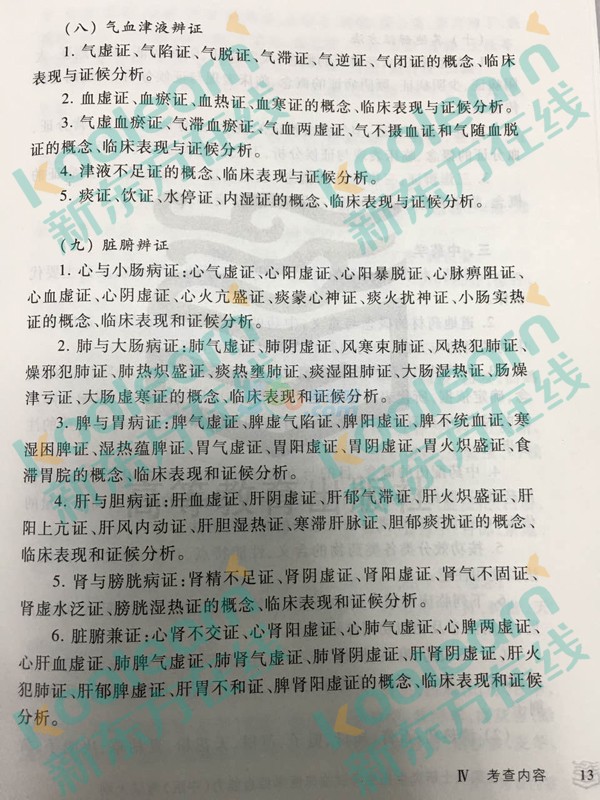 （八）气血津液辨证
1. 气虚证、气陷证、气脱证、气滞证、气逆证、气闭证的概念、临床
表现与证候分析。
2. 血虚证、血瘀证、血热证、血寒证的概念、临床表现与证候分析。
3. 气虚血瘀证、气滞血瘀证、气血两虚证、气不摄血证和气随血脱
证的概念、临床表现与证候分析。
4. 津液不足证的概念、临床表现与证候分析。
5. 痰证、饮证、水停证、内湿证的概念、临床表现与证候分析。
（九）脏腑辨证
1. 心与小肠病证：心气虚证、心阳虚证、心阳暴脱证、心脉痹阻证、
心血虚证、心阴虚证、心火亢盛证、痰蒙心神证、痰火扰神证、小肠实热
证的概念、临床表现和证候分析。
2. 肺与大肠病证：肺气虚证、肺阴虚证、风寒束肺证、风热犯肺证、
燥邪犯肺证、肺热炽盛证、痰热壅肺证、痰湿阻肺证、大肠湿热证、肠燥
津亏证、大肠虚寒证的概念、临床表现和证候分析。
3. 脾与胃病证：脾气虚证、脾虚气陷证、脾阳虚证、脾不统血证、寒
湿困脾证、湿热蕴脾证、胃气虚证、胃阳虚证、胃阴虚证、胃火炽盛证、食
滞胃脘的概念、临床表现和证候分析。
4. 肝与胆病证：肝血虚证、肝阴虚证、肝郁气滞证、肝火炽盛证、肝
阳上亢证、肝风内动证、肝胆湿热证、寒滞肝脉证、胆郁痰扰证的概念、
临床表现和证候分析。
5. 肾与膀胱病证：肾精不足证、肾阴虚证、肾阳虚证、肾气不固证、
肾虚水泛证、膀胱湿热证的概念、临床表现和证候分析。
6. 脏腑兼证：心肾不交证、心肾阳虚证、心肺气虚证、心脾两虚证、
心肝血虚证、肺脾气虚证、肺肾气虚证、肺肾阴虚证、肝肾阴虚证、肝火
犯肺证、肝郁脾虚证、肝胃不和证、脾肾阳虚证的概念、临床表现和证候
分析。
Ⅳ 考查内容 13
koolearn
新东方在线
koolearn
新东方在线
koolearn
新东方在线
koolearn
新东方在线